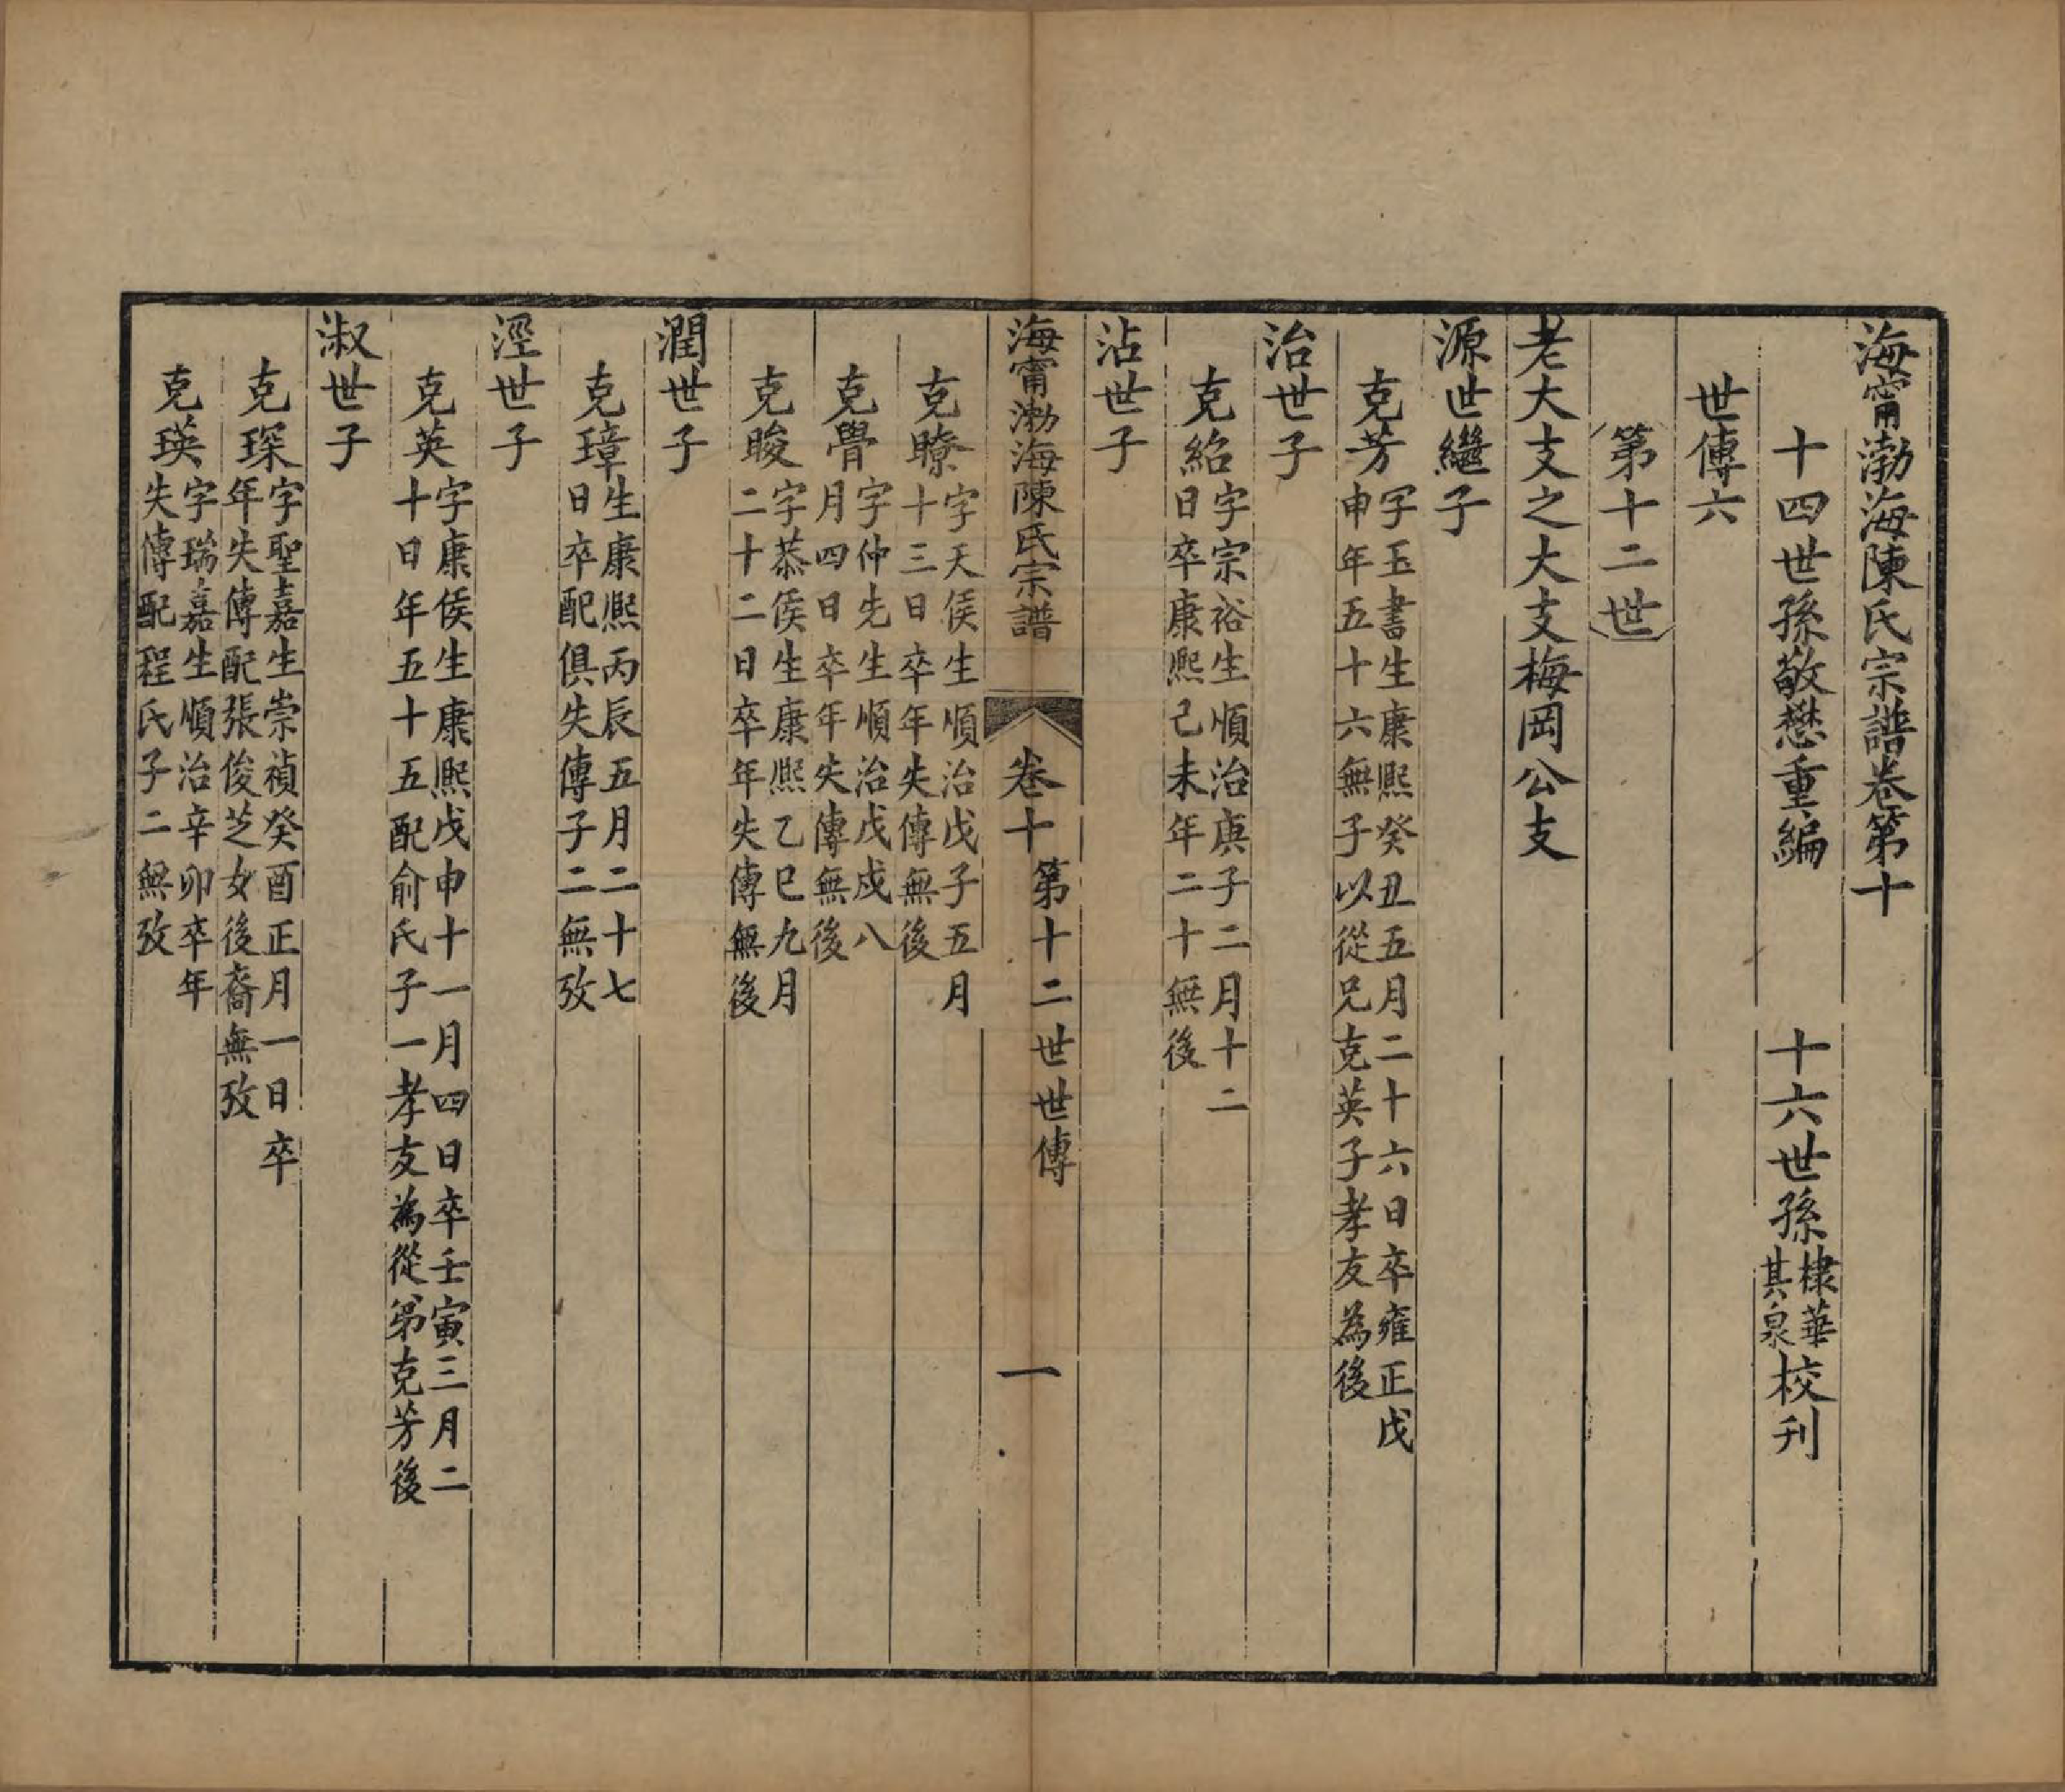 海甯渤海陳氏宗譜卷第十
十四世孫敬懋重編
十六世孫棣華其泉校刊
世傳六
第十二世
老大支之大支梅岡公支
源世繼子
克芳字玉書生康熙癸丑五月二十六日卒雍正戊
申年五十六無子以從兄克英子孝友為後
治世子
克紹字宗裕生順治庚子二月十二
日卒康熙己未年二十無後
沾世子
海甯渤海陳氏宗譜
卷十
第十二世世傳
一
克瞭字天侯生順治戊子五月
十三日卒年失傳無後
克覺字仲先生順治戊戌八
月四日卒年失傳無後
克晙字恭侯生康熙乙巳九月
二十二日卒年失傳無後
潤世子
克璋生康熙丙辰五月二十七
日卒配俱失傳子二無攷
涇世子
克英字康侯生康熙戊申十一月四日卒壬寅三月二
十日年五十五配俞氏子一孝友為從弟克芳後
淑世子
克琛字聖嘉生崇禎癸酉正月一日卒
年失傳配張俊芝女後裔無攷
克瑛字瑞嘉生順治辛卯卒年
失傳配程氏子二無攷